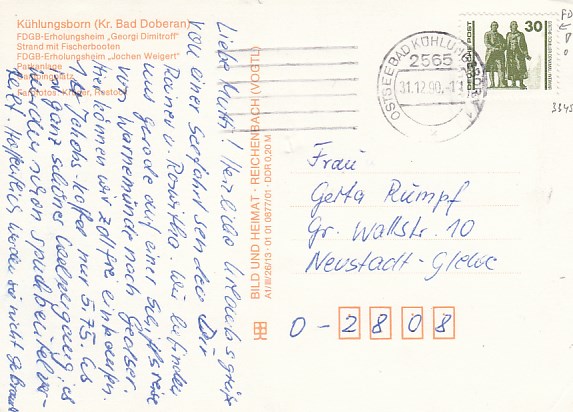 Kühlungsborn (Kr. Bad Doberan)
FDGB-Erholungsheim „Georgi Dimitroff"
Strand mit Fischerbooten
FDGB-Erholungsheim „Jochen Weigert"
Parkanlage
Campingplatz
Farbfotos: Krüger, Rostock
Liebe Mutti! Herzliche Urlaubsgrüße
von einer Seefahrt senden Dir
Rainer u. Roswitha. Wir befinden
uns gerade auf einer Schiffsreise
von Warnemünde nach Gedser.
Hier können wir zollfrei einkaufen.
nur 5.75. Es
ist ganz schöner Seegang, es
werden schon Spuckbeutel ver-
teilt. Hoffentlich werden sie nicht gebraucht
BILD UND HEIMAT · REICHENBACH (VOGTL)
A1/B/26/13 · 01 01 0877/01 · DDR 0,20 M
OSTSEEBAD KÜHLUNGSBORN 1
2565
31.12.90
DEUTSCHE POST
30
FD
3345
Frau
Gerta Rumpf
Gr. Wallstr. 10
Neustadt-Glewe
O - 2808